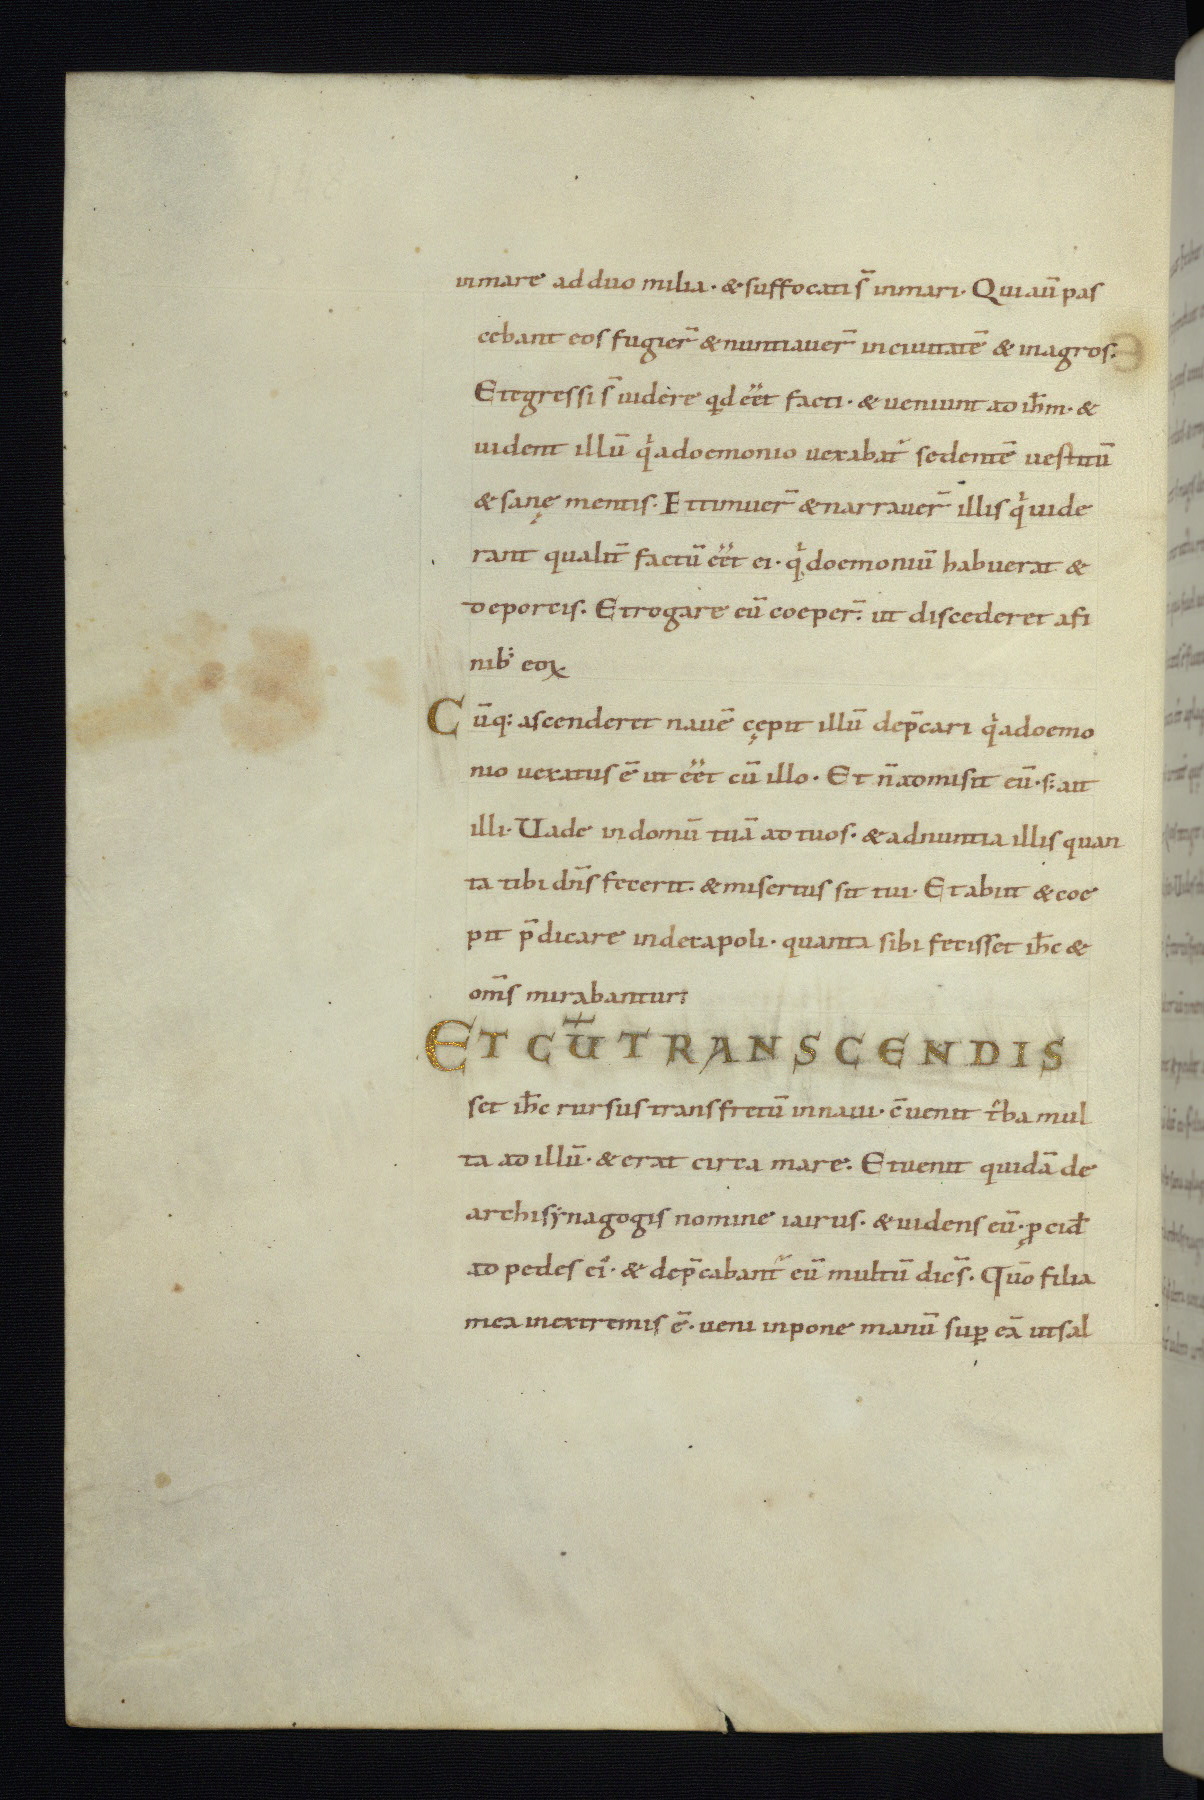 in mare ad duo milia · & suffocati s̄ in mari · Qui aū pas
cebant eos fugier̄ & nuntiauer̄ in ciuitatē & in agros .
Et egressi s̄ uidere qd eēt facti · & ueniunt ad ih̄m · &
uident illū q̇ a doemonio uexabat᷑ sedentē uestitū
& sanę mentis · Et timuer̄ & narrauer̄ illis q̇ uide
rant qualit̄ factū eēt ei · q̇ doemoniū habuerat &
de porcis . Et rogare eū coeper̄ . ut discederet a fi
nib; eoꝝ
Cūq: ascenderet nauē cępit illū dep̄cari q̇ a doemo
nio uexatus ē ut eēt cū illo · Et n̄ admisit eū · s: ait
illi · Uade in domū tuā ad tuos · & adnuntia illis quan
ta tibi dn̄s fecerit · & misertus sit tui · Et abiit & coe
pit p̄dicare in decapoli · quanta sibi fecisset ih̄c &
om̄s mirabantur :
ET CŪ TRANSCENDIS
set ih̄c rursus trans fretū in naui · c̄uenit t᷑ba mul
ta ad illū · & erat circa mare . Et uenit quidā de
archisẏnagogis nomine iairus · & uidens eū · ꝓcid̄
ad pedes ei᷒ · & dep̄cabant᷑ eū multū dicēs · Quō filia
mea in extremis ē · ueni inpone manū suꝑ eā ut sal